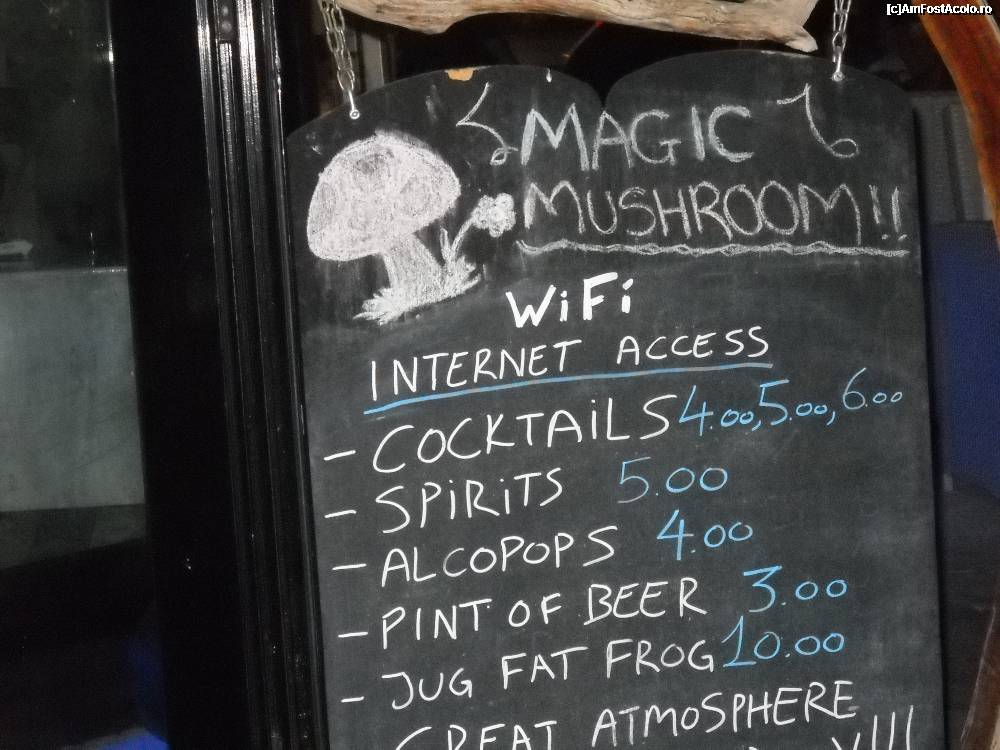 [c]AmFostAcolo.ro
MAGIC
MUSHROOM!!
WiFi
INTERNET ACCESS
- COCKTAiLS 4.00, 5.00, 6.00
- SPiRiTS 5.00
- ALCOPOPS 4.00
- PINT OF BEER 3.00
- JUG FAT FROG 10.00
GREAT ATMOSPHERE